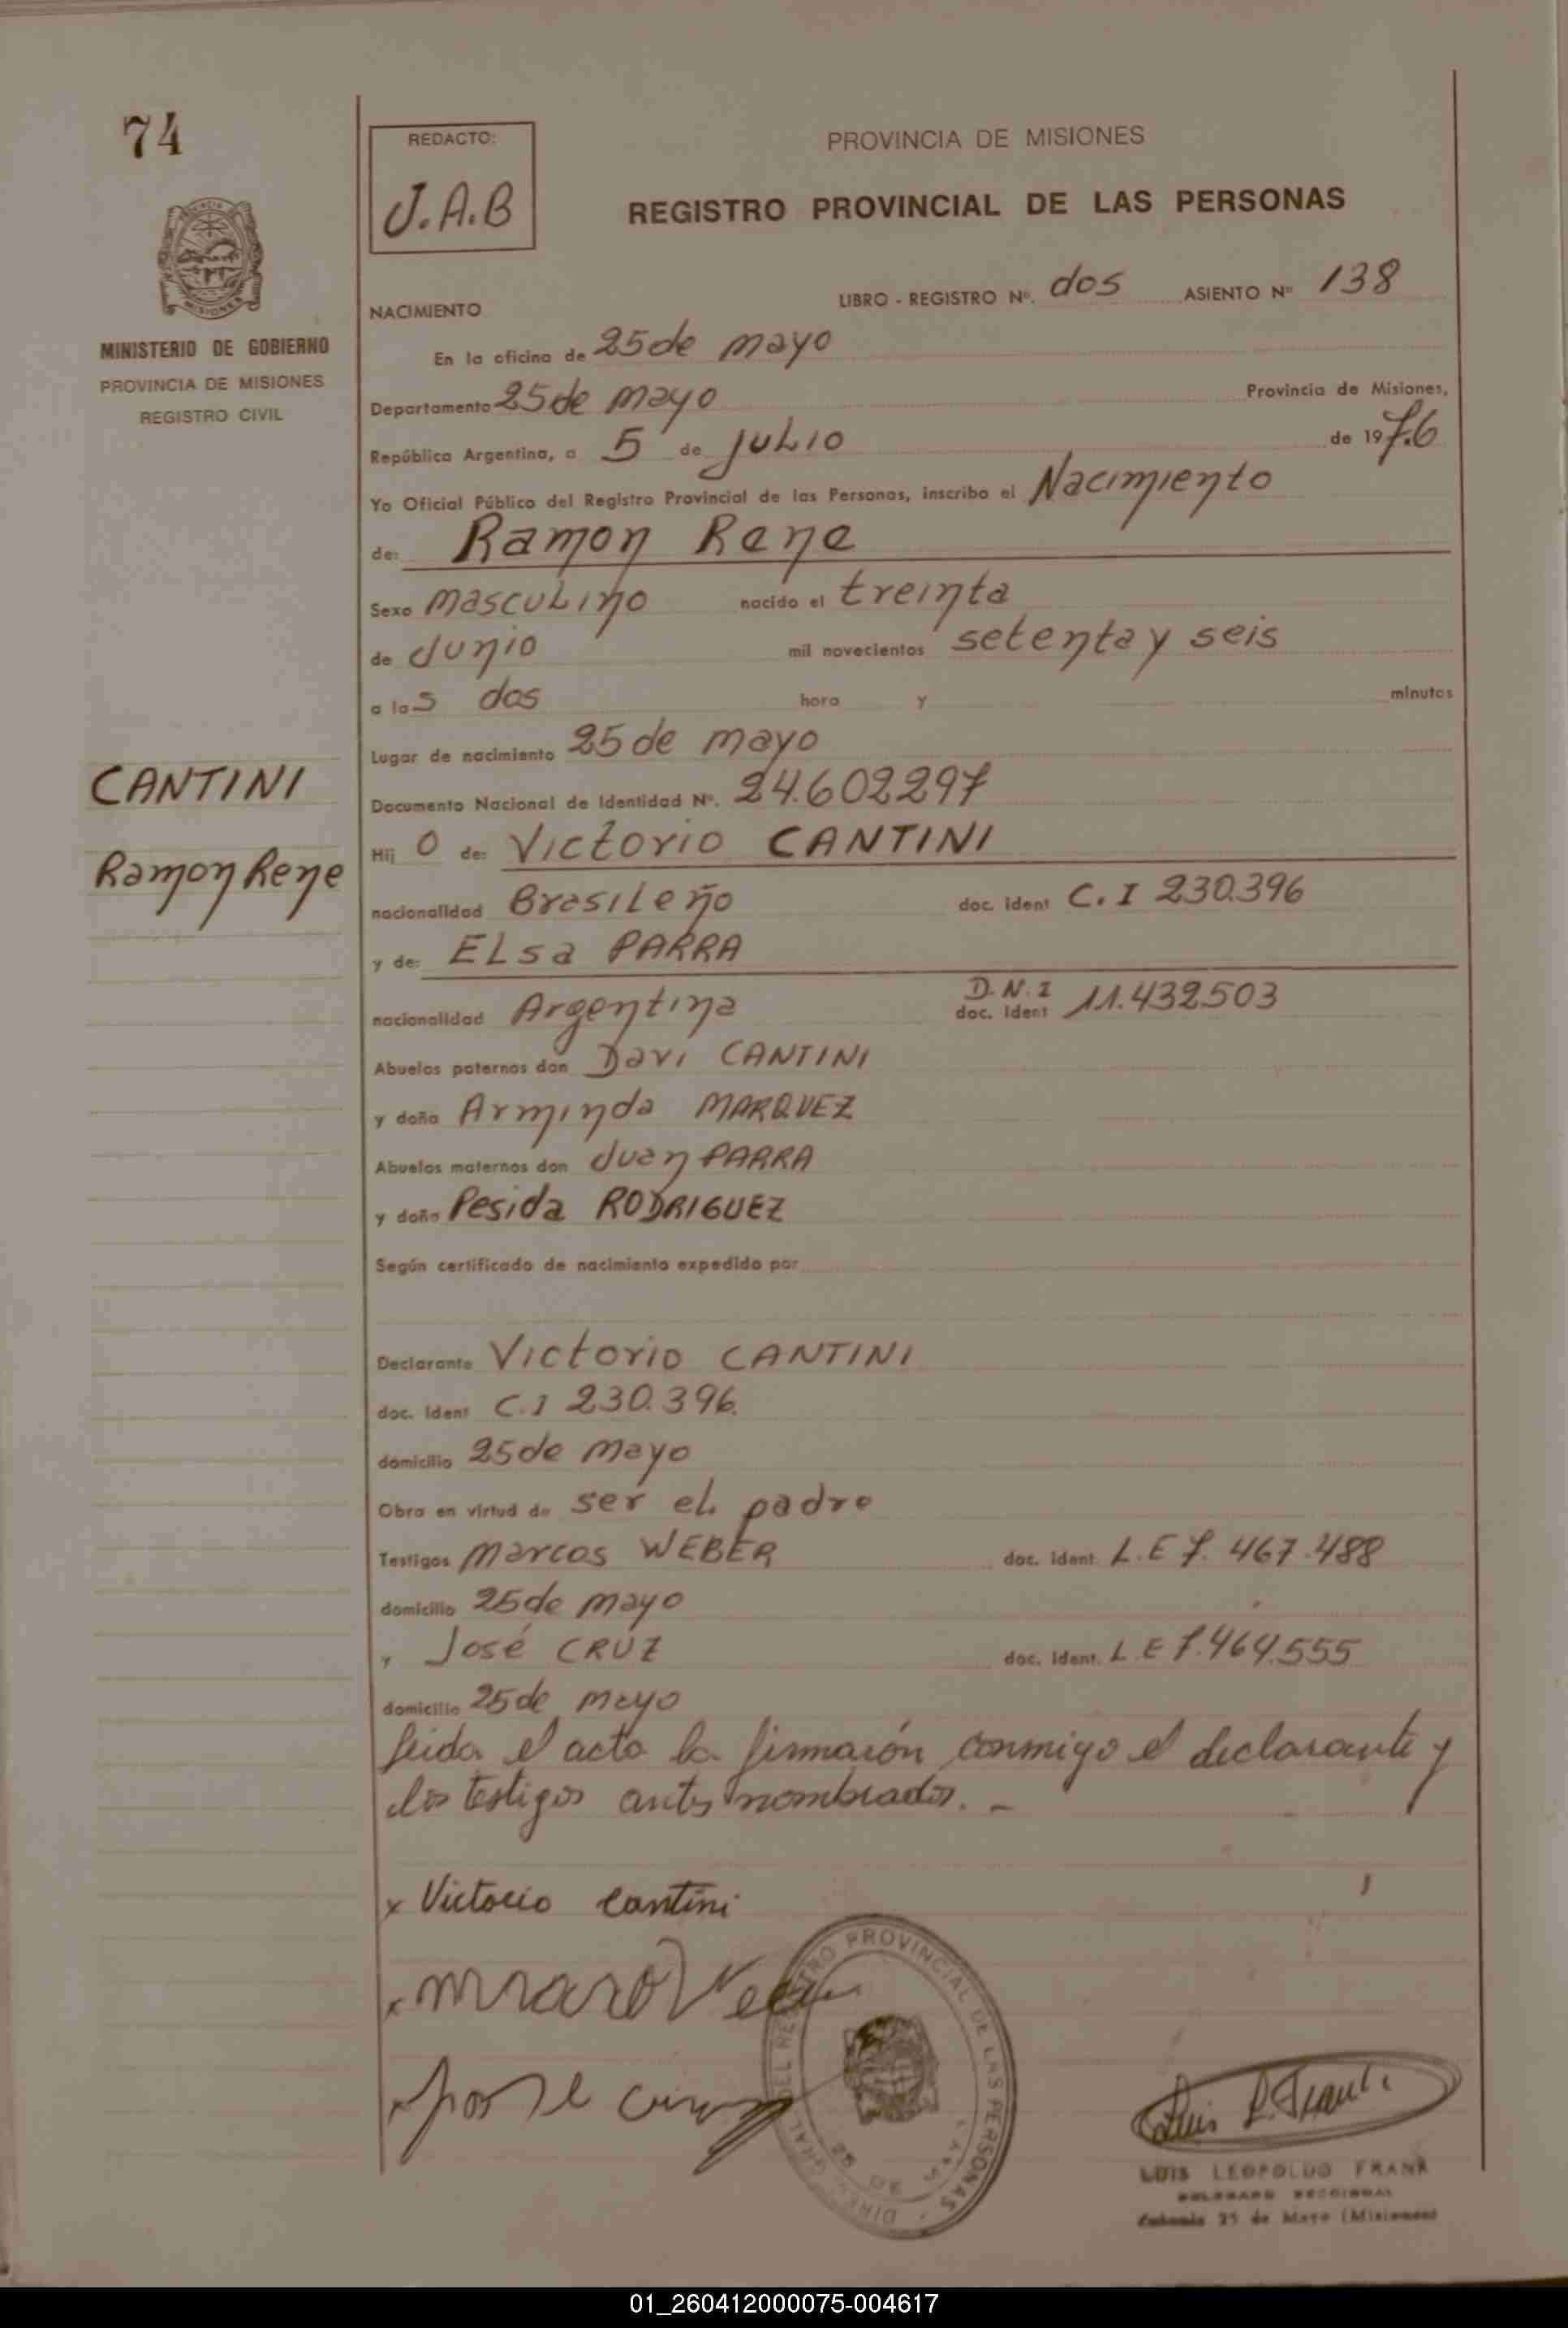 74
REDACTO:
J.A.B
PROVINCIA DE MISIONES
REGISTRO PROVINCIAL DE LAS PERSONAS
MINISTERIO DE GOBIERNO
PROVINCIA DE MISIONES
REGISTRO CIVIL
NACIMIENTO
LIBRO - REGISTRO Nº. dos ASIENTO Nº 138
En la oficina de 25 de mayo
Departamento 25 de mayo Provincia de Misiones,
República Argentina, a 5 de JULIO de 1976
Yo Oficial Público del Registro Provincial de las Personas, inscribo el Nacimiento
de: Ramon Rene
Sexo masculino nacido el treinta
de Junio mil novecientos setenta y seis
a las dos hora y minutos
Lugar de nacimiento 25 de mayo
CANTINI
Ramon Rene
Documento Nacional de Identidad Nº. 24.602297
Hij o de: Victorio CANTINI
nacionalidad Brasileño doc. ident C. I 230.396
y de: ELsa PARRA
nacionalidad Argentina D.N.I doc. ident 11.432503
Abuelos paternos don Davi CANTINI
y doña Arminda MARQUEZ
Abuelos maternos don Juan PARRA
y doña Pesida RODRIGUEZ
Según certificado de nacimiento expedido por
Declarante Victorio CANTINI
doc. ident C.I 230.396.
domicilio 25 de mayo
Obra en virtud de ser el padre
Testigos Marcos WEBER doc. ident. L.E 7.467.488
domicilio 25 de mayo
y José CRUZ doc. ident. L.E 7.464.555
domicilio 25 de mayo
Leida el acta la firmaron conmigo el declarante y
los testigos antes nombrados. -
x Victorio Cantini
DIREC. GRAL. DEL REGISTRO PROVINCIAL DE LAS PERSONAS
25 DE MAYO
LUIS LEOPOLDO FRANK
DELEGADO SECCIONAL
Colonia 25 de Mayo (Misiones)
01_260412000075-004617